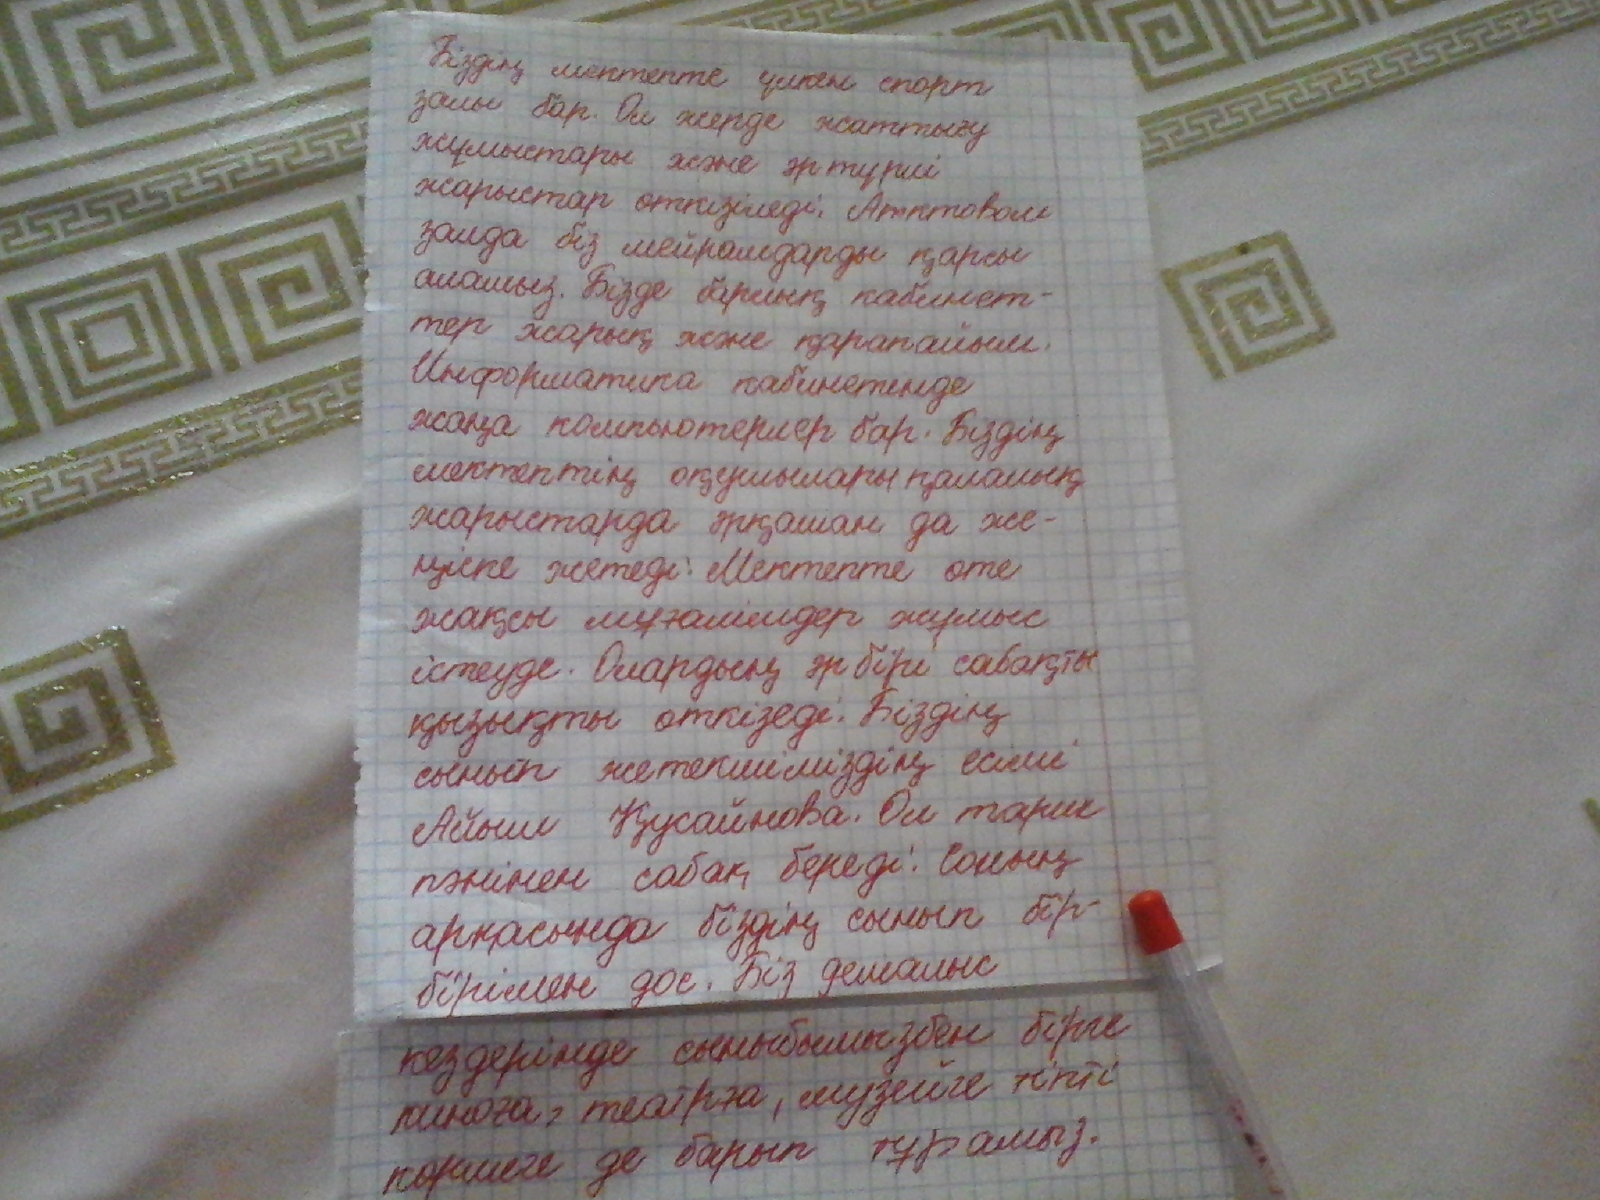 Біздің мектепте үлкен спорт
залы бар. Ол жерде жаттығу
жұмыстары және әр түрлі
жарыстар откізіледі. Актовом
залда біз мейрамдарды қарсы
аламыз. Бізде барлық кабинет-
тер жарық және қарапайым.
Информатика кабинетинде
жаңа компьютерлер бар. Біздің
мектептің оқушылары қалалық
жарыстарда әрқашан да же-
ңіске жетеді. Мектепте оте
жақсы мұғалімдер жұмыс
істеуде. Олардың әр бірі сабақты
қызықты откізеді. Біздің
сынып жетекшіміздің есімі
Айым Құсайнова. Ол тарих
пәнінен сабақ береді. Соның
арқасында біздің сынып бір-
бірімен дос. Біз демалыс
кездерінде сыныбымызбен бірге
киноға, театрға, музейге тіпті
көрмеге де барып тұрамыз.